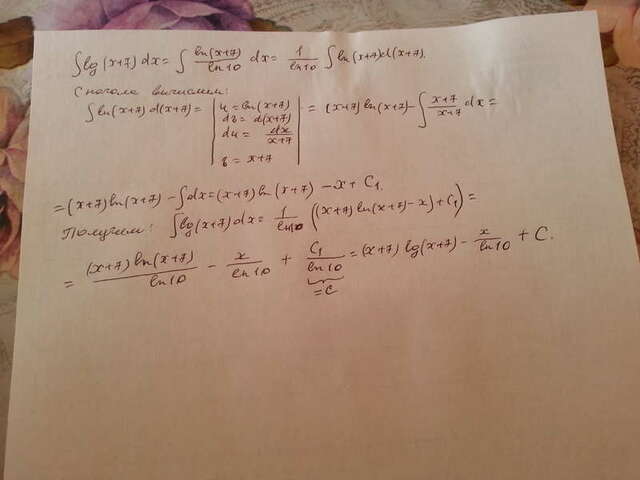 ∫lg(x+7)dx = ∫ ln(x+7)/ln10 dx = 1/ln10 ∫ln(x+7)d(x+7).
Сначала вычислим:
∫ln(x+7)d(x+7) = | u = ln(x+7) dv = d(x+7) du = dx/(x+7) v = x+7 | = (x+7)ln(x+7) - ∫ (x+7)/(x+7) dx =
= (x+7)ln(x+7) - ∫dx = (x+7)ln(x+7) - x + C₁.
Получим: ∫lg(x+7)dx = 1/ln10 ((x+7)ln(x+7) - x) + C₁) =
= (x+7)ln(x+7)/ln10 - x/ln10 + C₁/ln10 = (x+7)lg(x+7) - x/ln10 + C.
= C